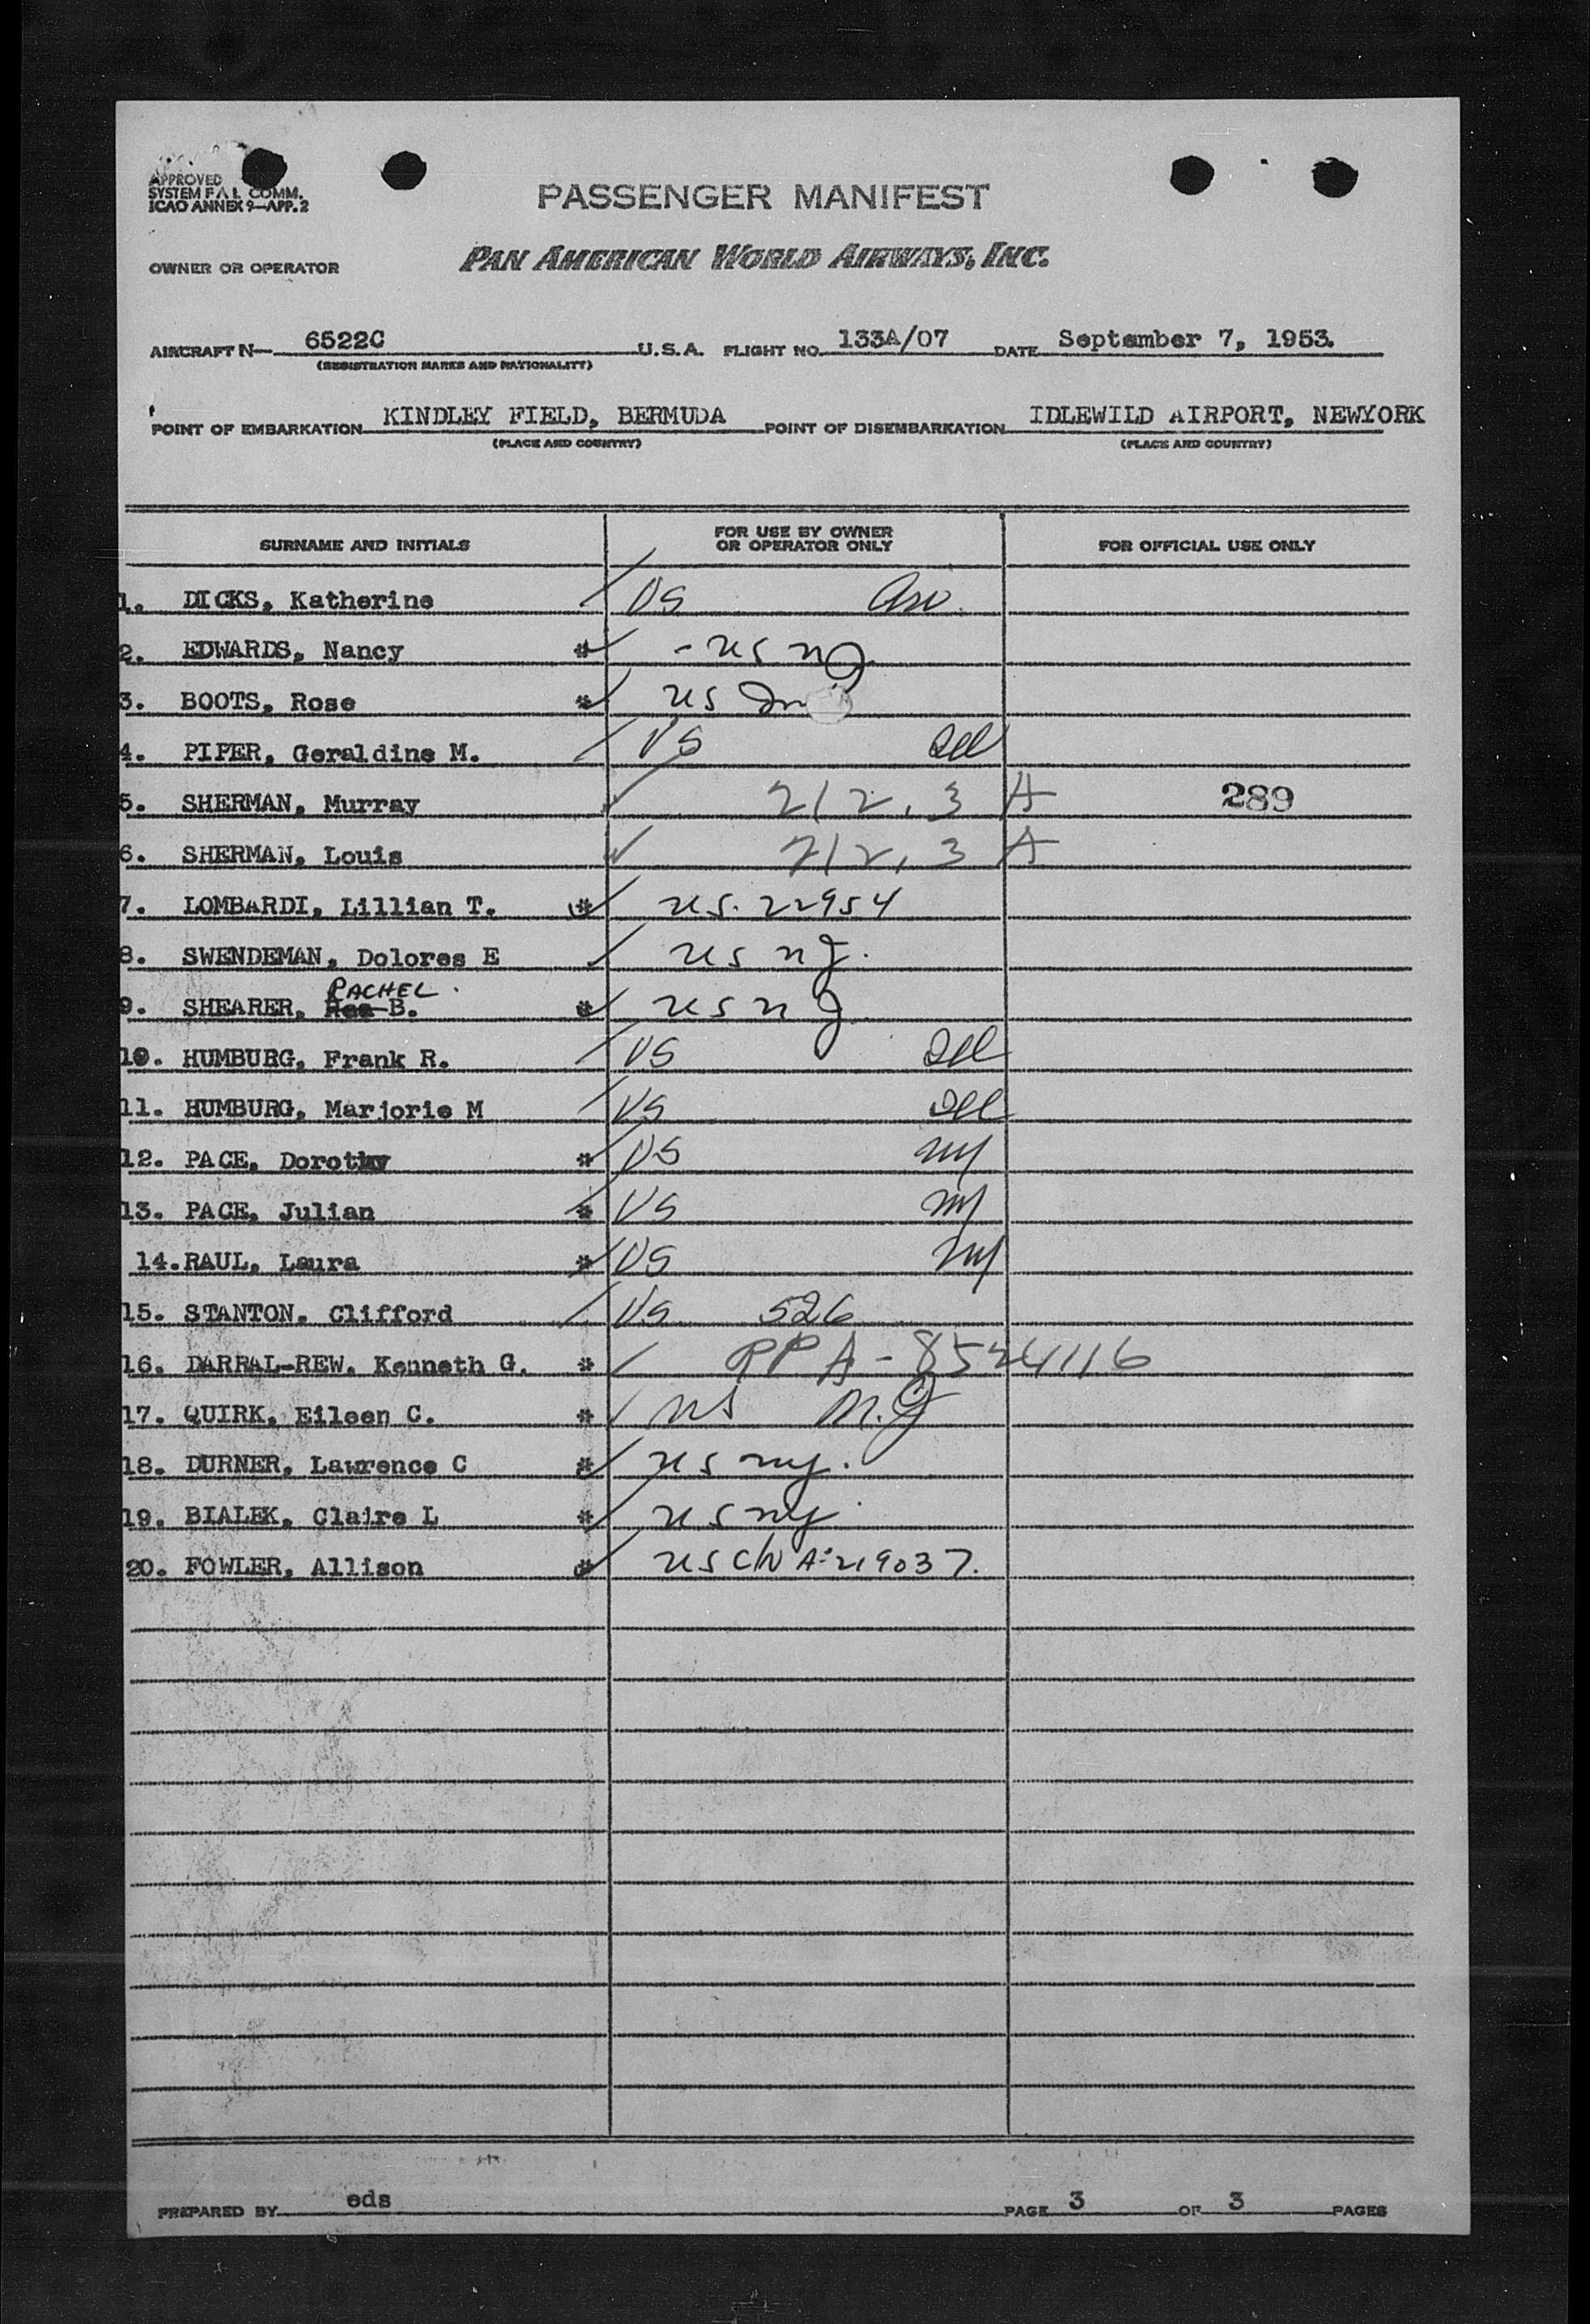 APPROVED
SYSTEM F A L COMM.
ICAO ANNEX 9—APP. 2
PASSENGER MANIFEST
OWNER OR OPERATOR PAN AMERICAN WORLD AIRWAYS, INC.
AIRCRAFT N— 6522C U.S.A. FLIGHT NO. 133A/07 DATE September 7, 1953.
(REGISTRATION MARKS AND NATIONALITY)
POINT OF EMBARKATION KINDLEY FIELD, BERMUDA POINT OF DISEMBARKATION IDLEWILD AIRPORT, NEWYORK
(PLACE AND COUNTRY) (PLACE AND COUNTRY)
SURNAME AND INITIALS FOR USE BY OWNER OR OPERATOR ONLY FOR OFFICIAL USE ONLY
1. DICKS, Katherine US
2. EDWARDS, Nancy * - US NJ
3. BOOTS, Rose * US
4. PIPER, Geraldine M. US Del
5. SHERMAN, Murray 212.3 A 289
6. SHERMAN, Louis 212.3 A
7. LOMBARDI, Lillian T. * US. 22954
8. SWENDEMAN, Dolores E US NJ.
RACHEL.
9. SHEARER, B. * US NJ
10. HUMBURG, Frank R. US Del
11. HUMBURG, Marjorie M US Del
12. PACE, Dorothy * US NY
13. PACE, Julian * US NY
14. RAUL, Laura * US NY
15. STANTON, Clifford US 526
16. DARRAL-REW, Kenneth G. * PP A-8524116
17. QUIRK, Eileen C. * US N.J
18. DURNER, Lawrence C * US NY.
19. BIALEK, Claire L * US NY
20. FOWLER, Allison * US C/N A-219037.
PREPARED BY eds PAGE 3 OF 3 PAGES